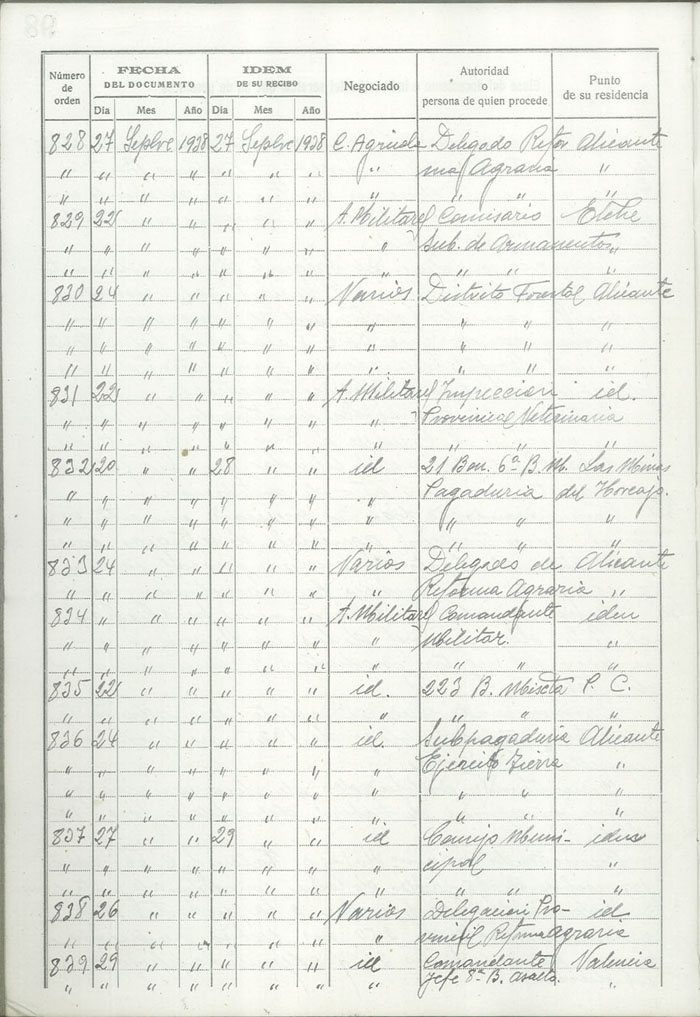 Número de orden | FECHA DEL DOCUMENTO | IDEM DE SU RECIBO | Negociado | Autoridad o persona de quien procede | Punto de su residencia
Dia Mes Año | Dia Mes Año
828 27 Sepbre 1938 27 Sepbre 1938 C. Agricola Delegado Refor Alicante
" " " " " " " " ma Agraria "
" " " " " " " " " "
829 22 " " " " " A. Militares Comisario Elche
" " " " " " " " Sub. de Armamentos "
" " " " " " " " " "
830 24 " " " " " Varios Distrito Forestal Alicante
" " " " " " " " " "
" " " " " " " " " "
" " " " " " " " " "
831 22 " " " " " A. Militares Inspeccion id.
" " " " " " " " Provincial Veterinaria
" " " " " " " " " "
832 20 " " 28 " " id 21 Bon. 6ª B. M. Las Minas
" " " " " " " " Pagaduria del Horcajo.
" " " " " " " " " "
" " " " " " " " " "
833 24 " " " " " Varios Delegado de Alicante
" " " " " " " " Reforma Agraria "
834 " " " " " " A. Militares Comandante idem
" " " " " " " " Militar. "
" " " " " " " " " "
835 22 " " " " " id. 223 B. Mixta P. C.
" " " " " " " " " "
836 24 " " " " " id. Subpagaduria Alicante
" " " " " " " " Ejercito Tierra "
" " " " " " " " " "
" " " " " " " " " "
837 27 " " 29 " " id Consejo Muni- idem
" " " " " " " " cipal "
" " " " " " " " " "
838 26 " " " " " Varios Delegacion Pro- id
" " " " " " " " vincial Reforma agraria
839 29 " " " " " id Comandante Valencia
" " " " " " " " Jefe 8º B. Asalto. "